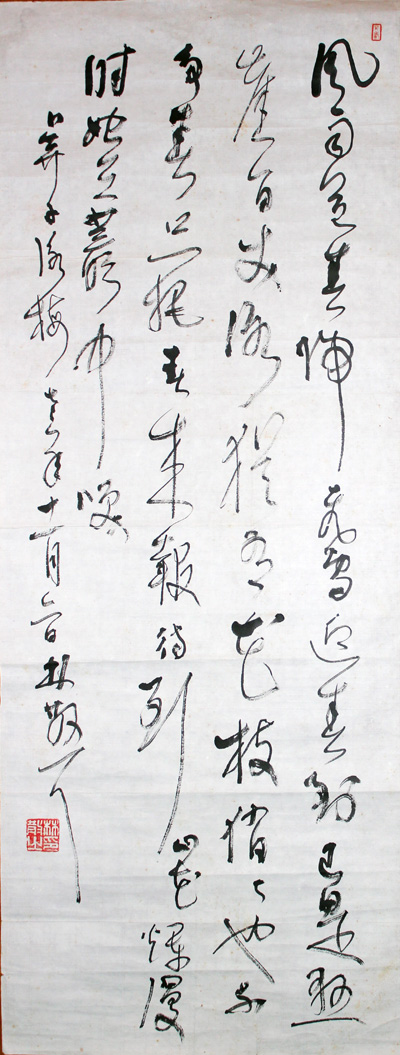 風雨送春歸飛雪迎春到已是懸
崖百丈冰猶有花枝俏々也不
争春只把春来報待到山花爛漫
时她在叢中咲
卜算子詠梅 年十一月 日林散耳